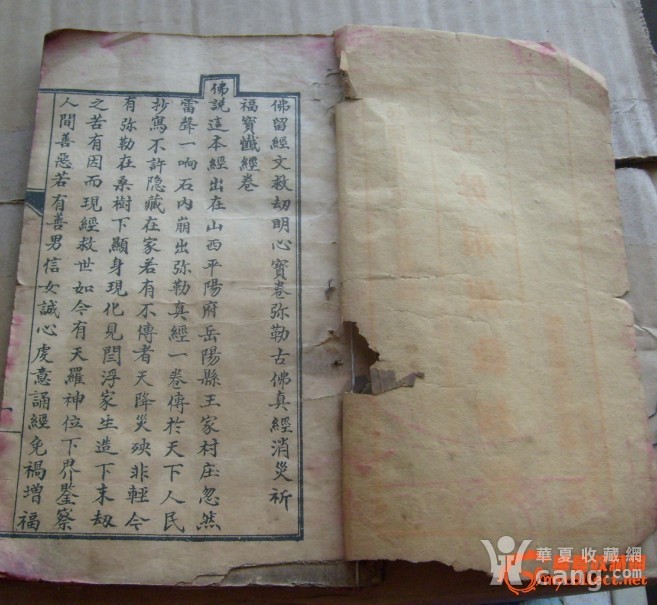 佛留經文救刼明心寳卷弥勒古佛真經消災祈
福寳懺經卷
佛說這本經出在山西平陽府岳陽縣王家村庄忽然
雷聲一响石内崩出弥勒真經一卷傳於天下人民
抄寫不許隐藏在家若有不傳者天降災殃非輕今
有弥勒在桑樹下顯身現化見閻浮家生造下末刼
之苦有因而現經救世如今有天羅神位下界鑒察
人間善惡若有善男信女誠心虔意誦經免禍增福
華夏收藏網
cang.com